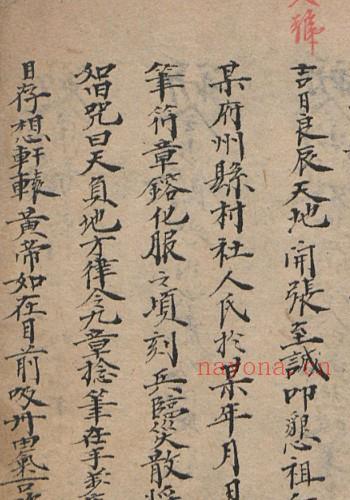 號
吉日良辰天地開張至誠叩懇祖
某府州縣村社人民於某年月日
筆符章鎔化服之頃刻兵臨災散
如旧咒曰天貟地方律令九章捻筆在手
目存想軒轅黃帝如在目前吸升由氣一
nayona.cn